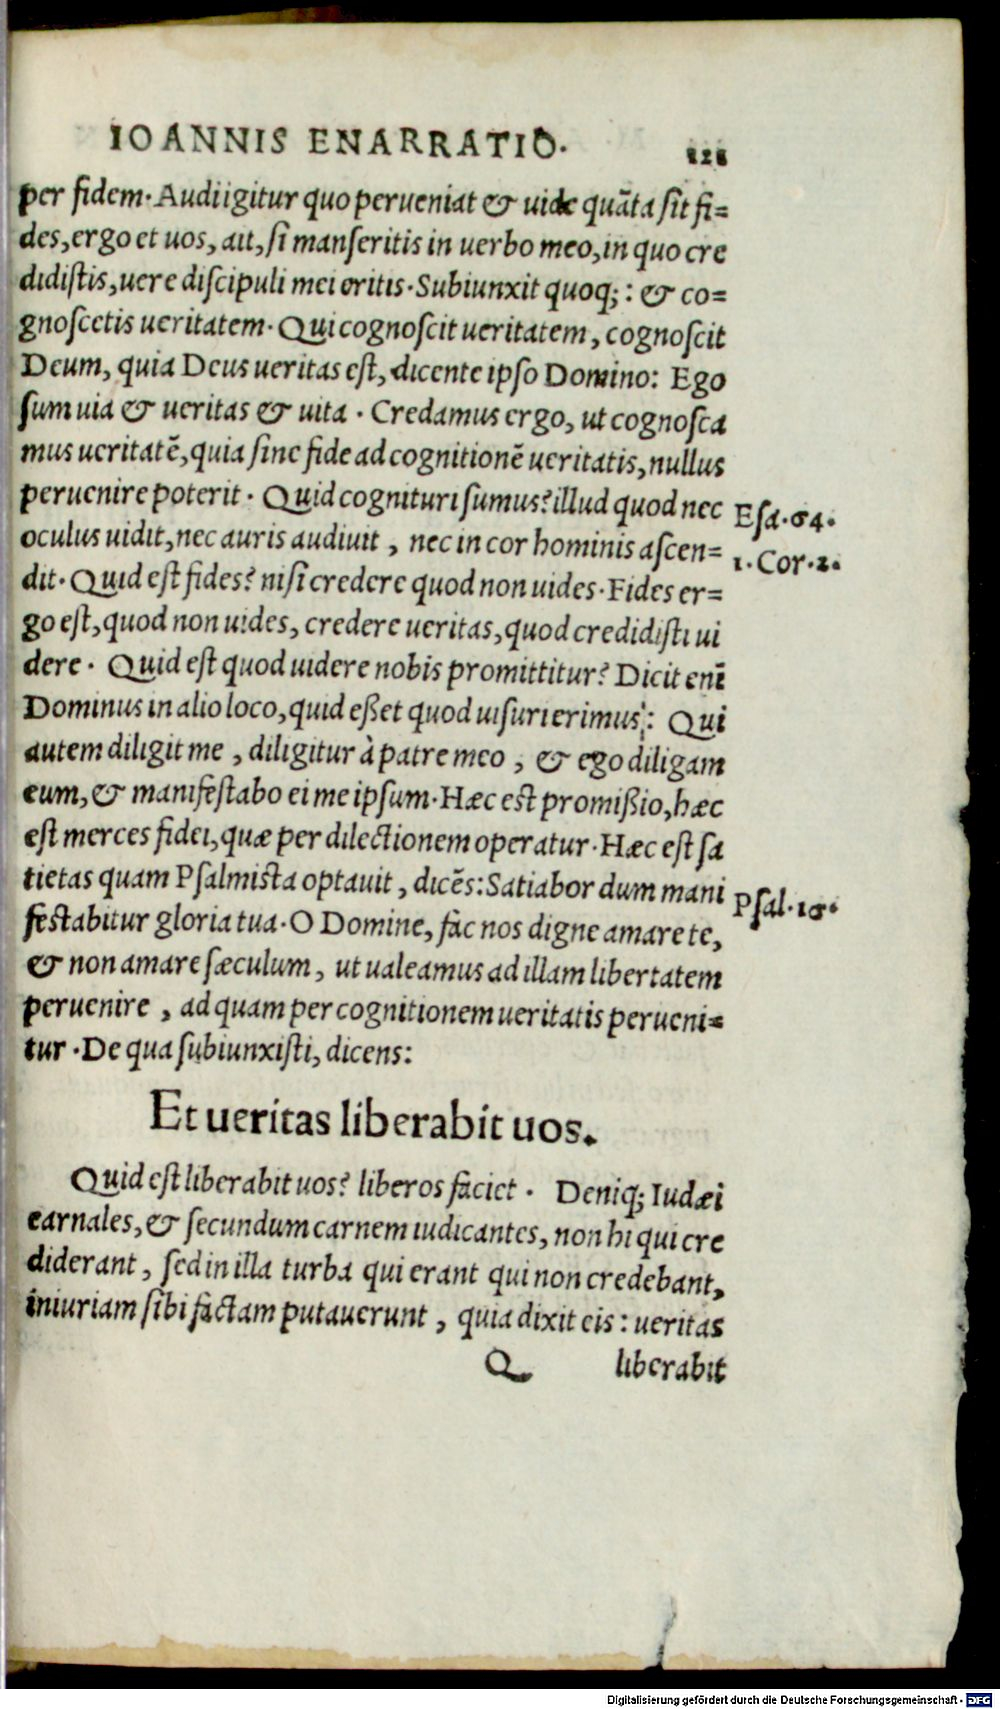 IOANNIS ENARRATIO. 121
per fidem. Audi igitur quo perueniat & uide quãta sit fi=
des, ergo et uos, ait, si manseritis in uerbo meo, in quo cre
didistis, uere discipuli mei eritis. Subiunxit quoq;: & co=
gnoscetis ueritatem. Qui cognoscit ueritatem, cognoscit
Deum, quia Deus ueritas est, dicente ipso Domino: Ego
sum uia & ueritas & uita. Credamus ergo, ut cognosca
mus ueritatẽ, quia sine fide ad cognitionẽ ueritatis, nullus
peruenire poterit. Quid cognituri sumus? illud quod nec
Esa. 64.
oculus uidit, nec auris audiuit, nec in cor hominis ascen=
1. Cor. 2.
dit. Quid est fides? nisi credere quod non uides. Fides er=
go est, quod non uides, credere ueritas, quod credidisti ui
dere. Quid est quod uidere nobis promittitur? Dicit enĩ
Dominus in alio loco, quid eßet quod uisuri erimus: Qui
autem diligit me, diligitur à patre meo, & ego diligam
eum, & manifestabo ei me ipsum. Hæc est promißio, hæc
est merces fidei, quæ per dilectionem operatur. Hæc est sa
tietas quam Psalmista optauit, dicẽs: Satiabor dum mani
Psal. 16.
festabitur gloria tua. O Domine, fac nos digne amare te,
& non amare sæculum, ut ualeamus ad illam libertatem
peruenire, ad quam per cognitionem ueritatis perueni=
tur. De qua subiunxisti, dicens:
Et ueritas liberabit uos.
Quid est liberabit uos? liberos faciet. Deniq; Iudæi
carnales, & secundum carnem iudicantes, non hi qui cre
diderant, sed in illa turba qui erant qui non credebant,
iniuriam sibi factam putauerunt, quia dixit eis: ueritas
Q liberabit
Digitalisierung gefördert durch die Deutsche Forschungsgemeinschaft - DFG